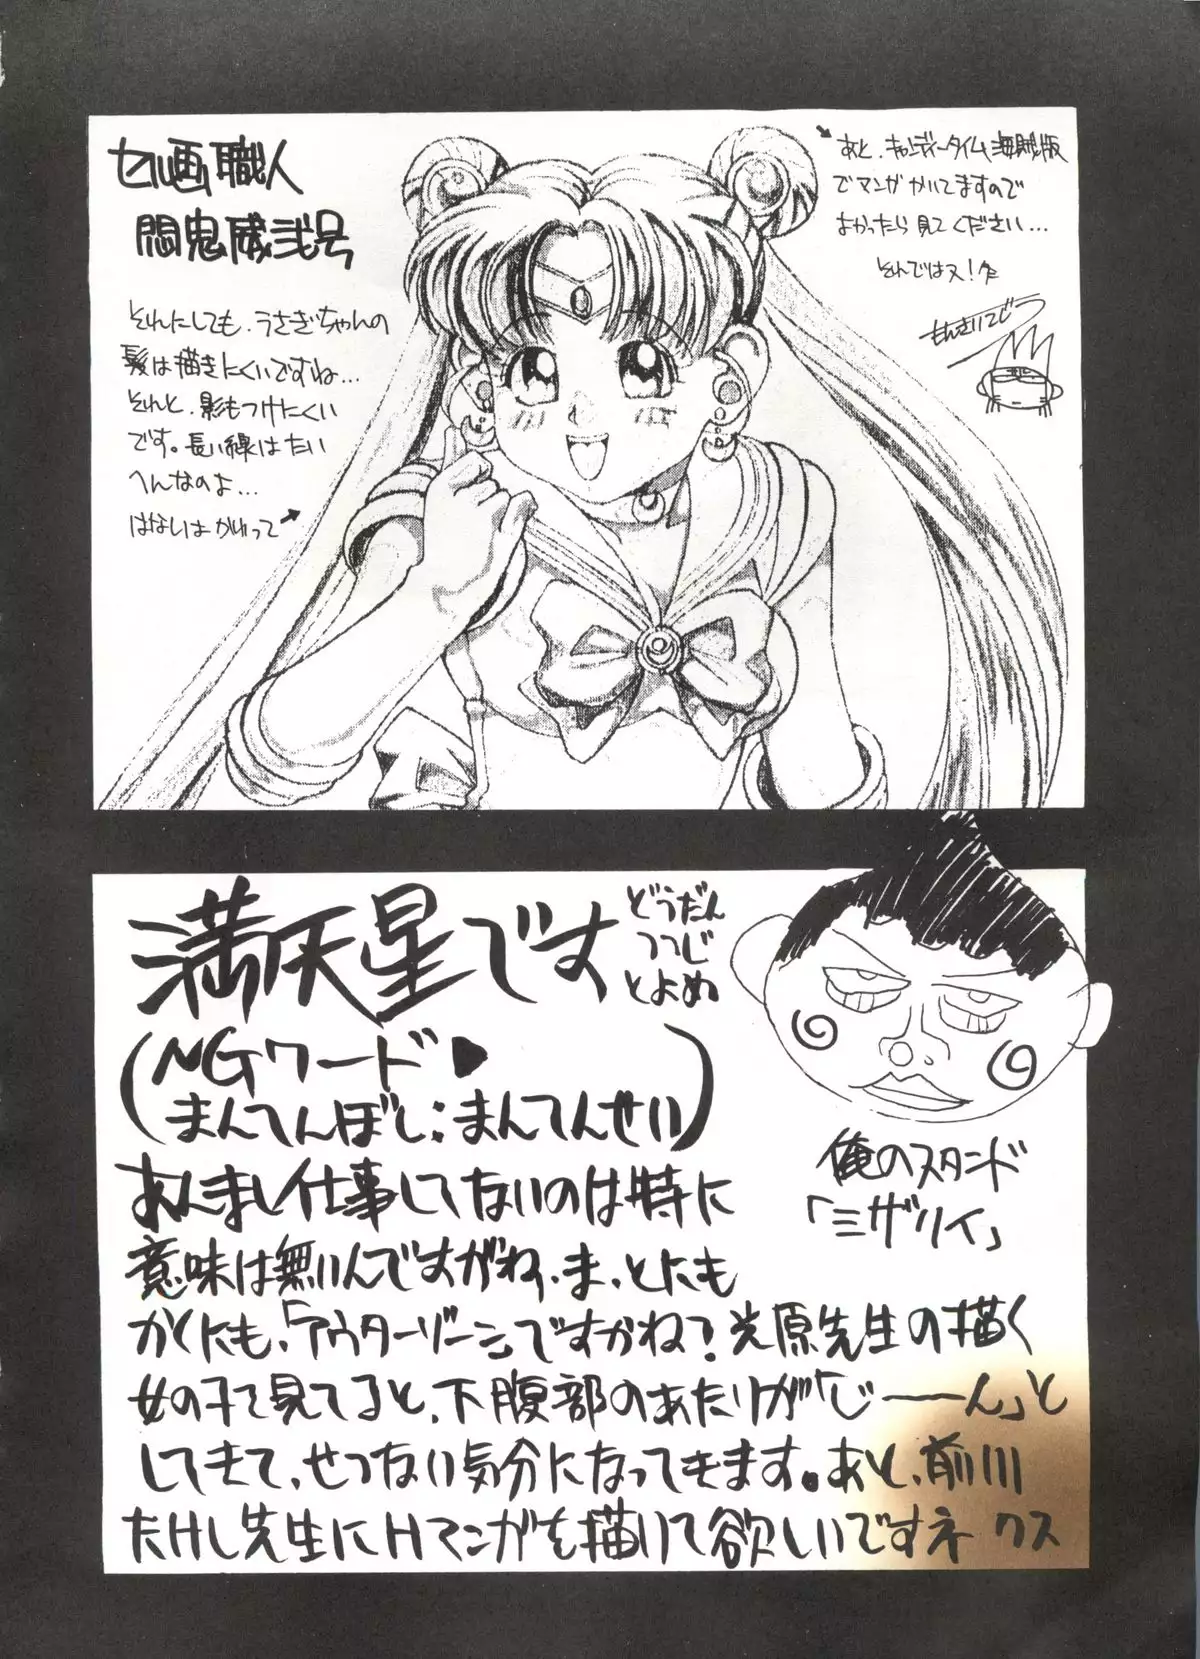 セル画職人
悶鬼威弐号
それにしても、うさぎちゃんの
髪は描きにくいですね…
それと、影もつけにくい
です。長い線はたい
へんなのよ…
はないはかいって
あと、キャンディータイム海賊版
でマンガかいてますので
よかったら見てください…
それではヌ!
もんきいにごう
満天星です
どうだん
つつじ
とよぬ
(NGワード♥
まんてんぼし:まんてんせい)
あんまし仕事してないのは特に
意味は無いんですがね、ま、とにも
かくにも、「アウターゾーン」ですかね?光原先生の描く
女の子て見てると、下腹部のあたりが「じーーん」と
してきて、せつない気分になってきます。あと、前川
たけし先生にHマンガを描いて欲しいですネ クス
俺のスタンド
「ミザリィ」